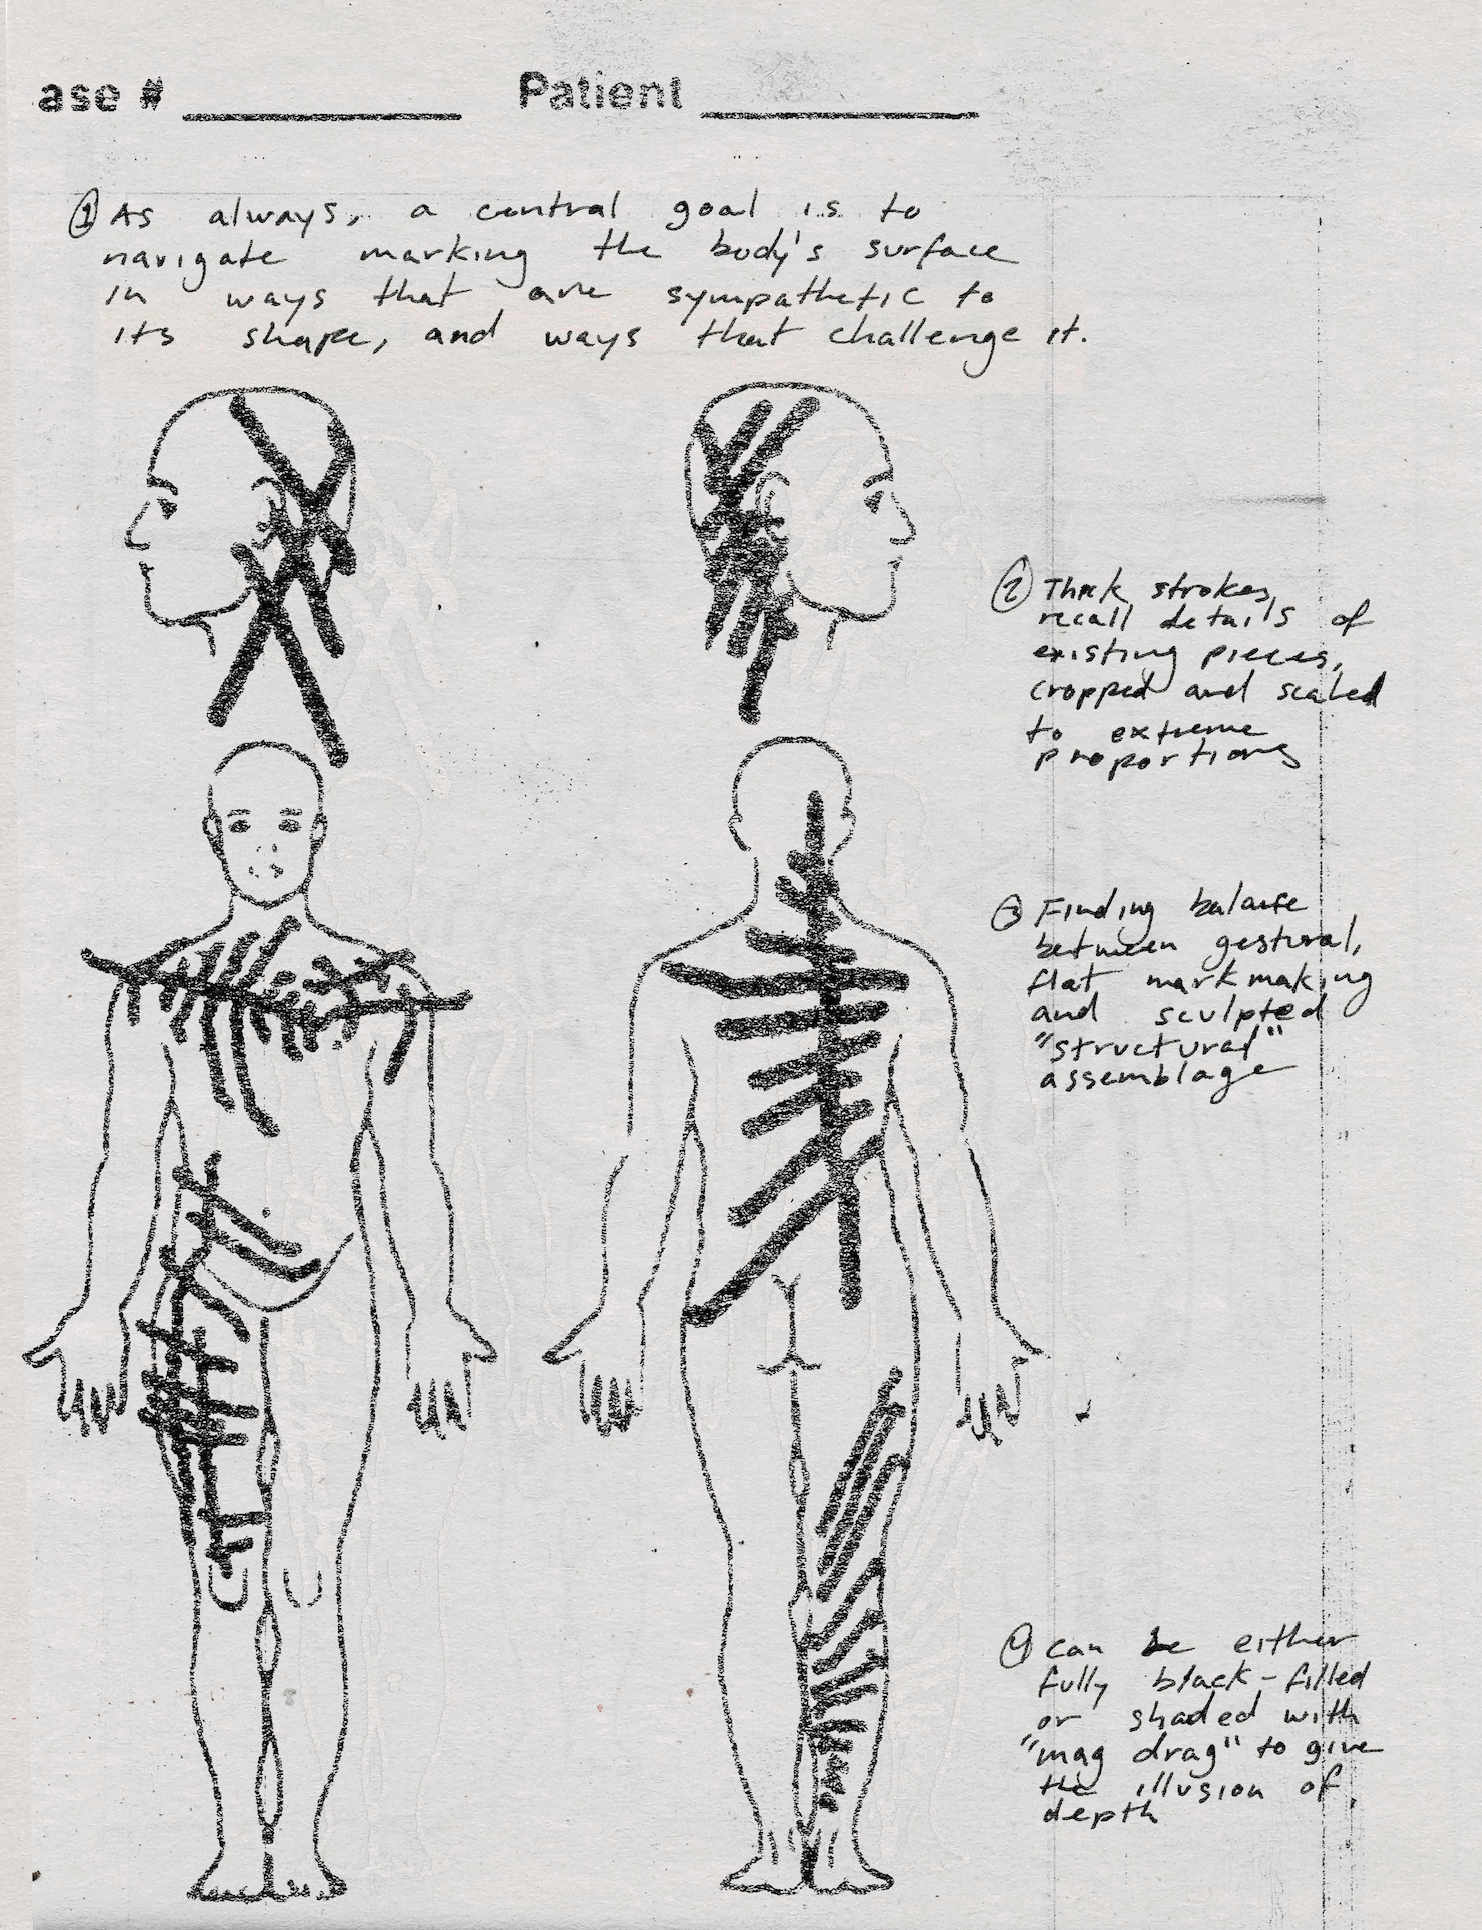 ase # ________ Patient ________
① As always, a central goal is to
navigate marking the body's surface
in ways that are sympathetic to
its shape, and ways that challenge it.
② Thick strokes
recall details of
existing pieces,
cropped and scaled
to extreme
proportions
③ Finding balance
between gestural,
flat markmaking
and sculpted
"structural"
assemblage
④ can be either
fully black-filled
or shaded with
"mag drag" to give
the illusion of
depth